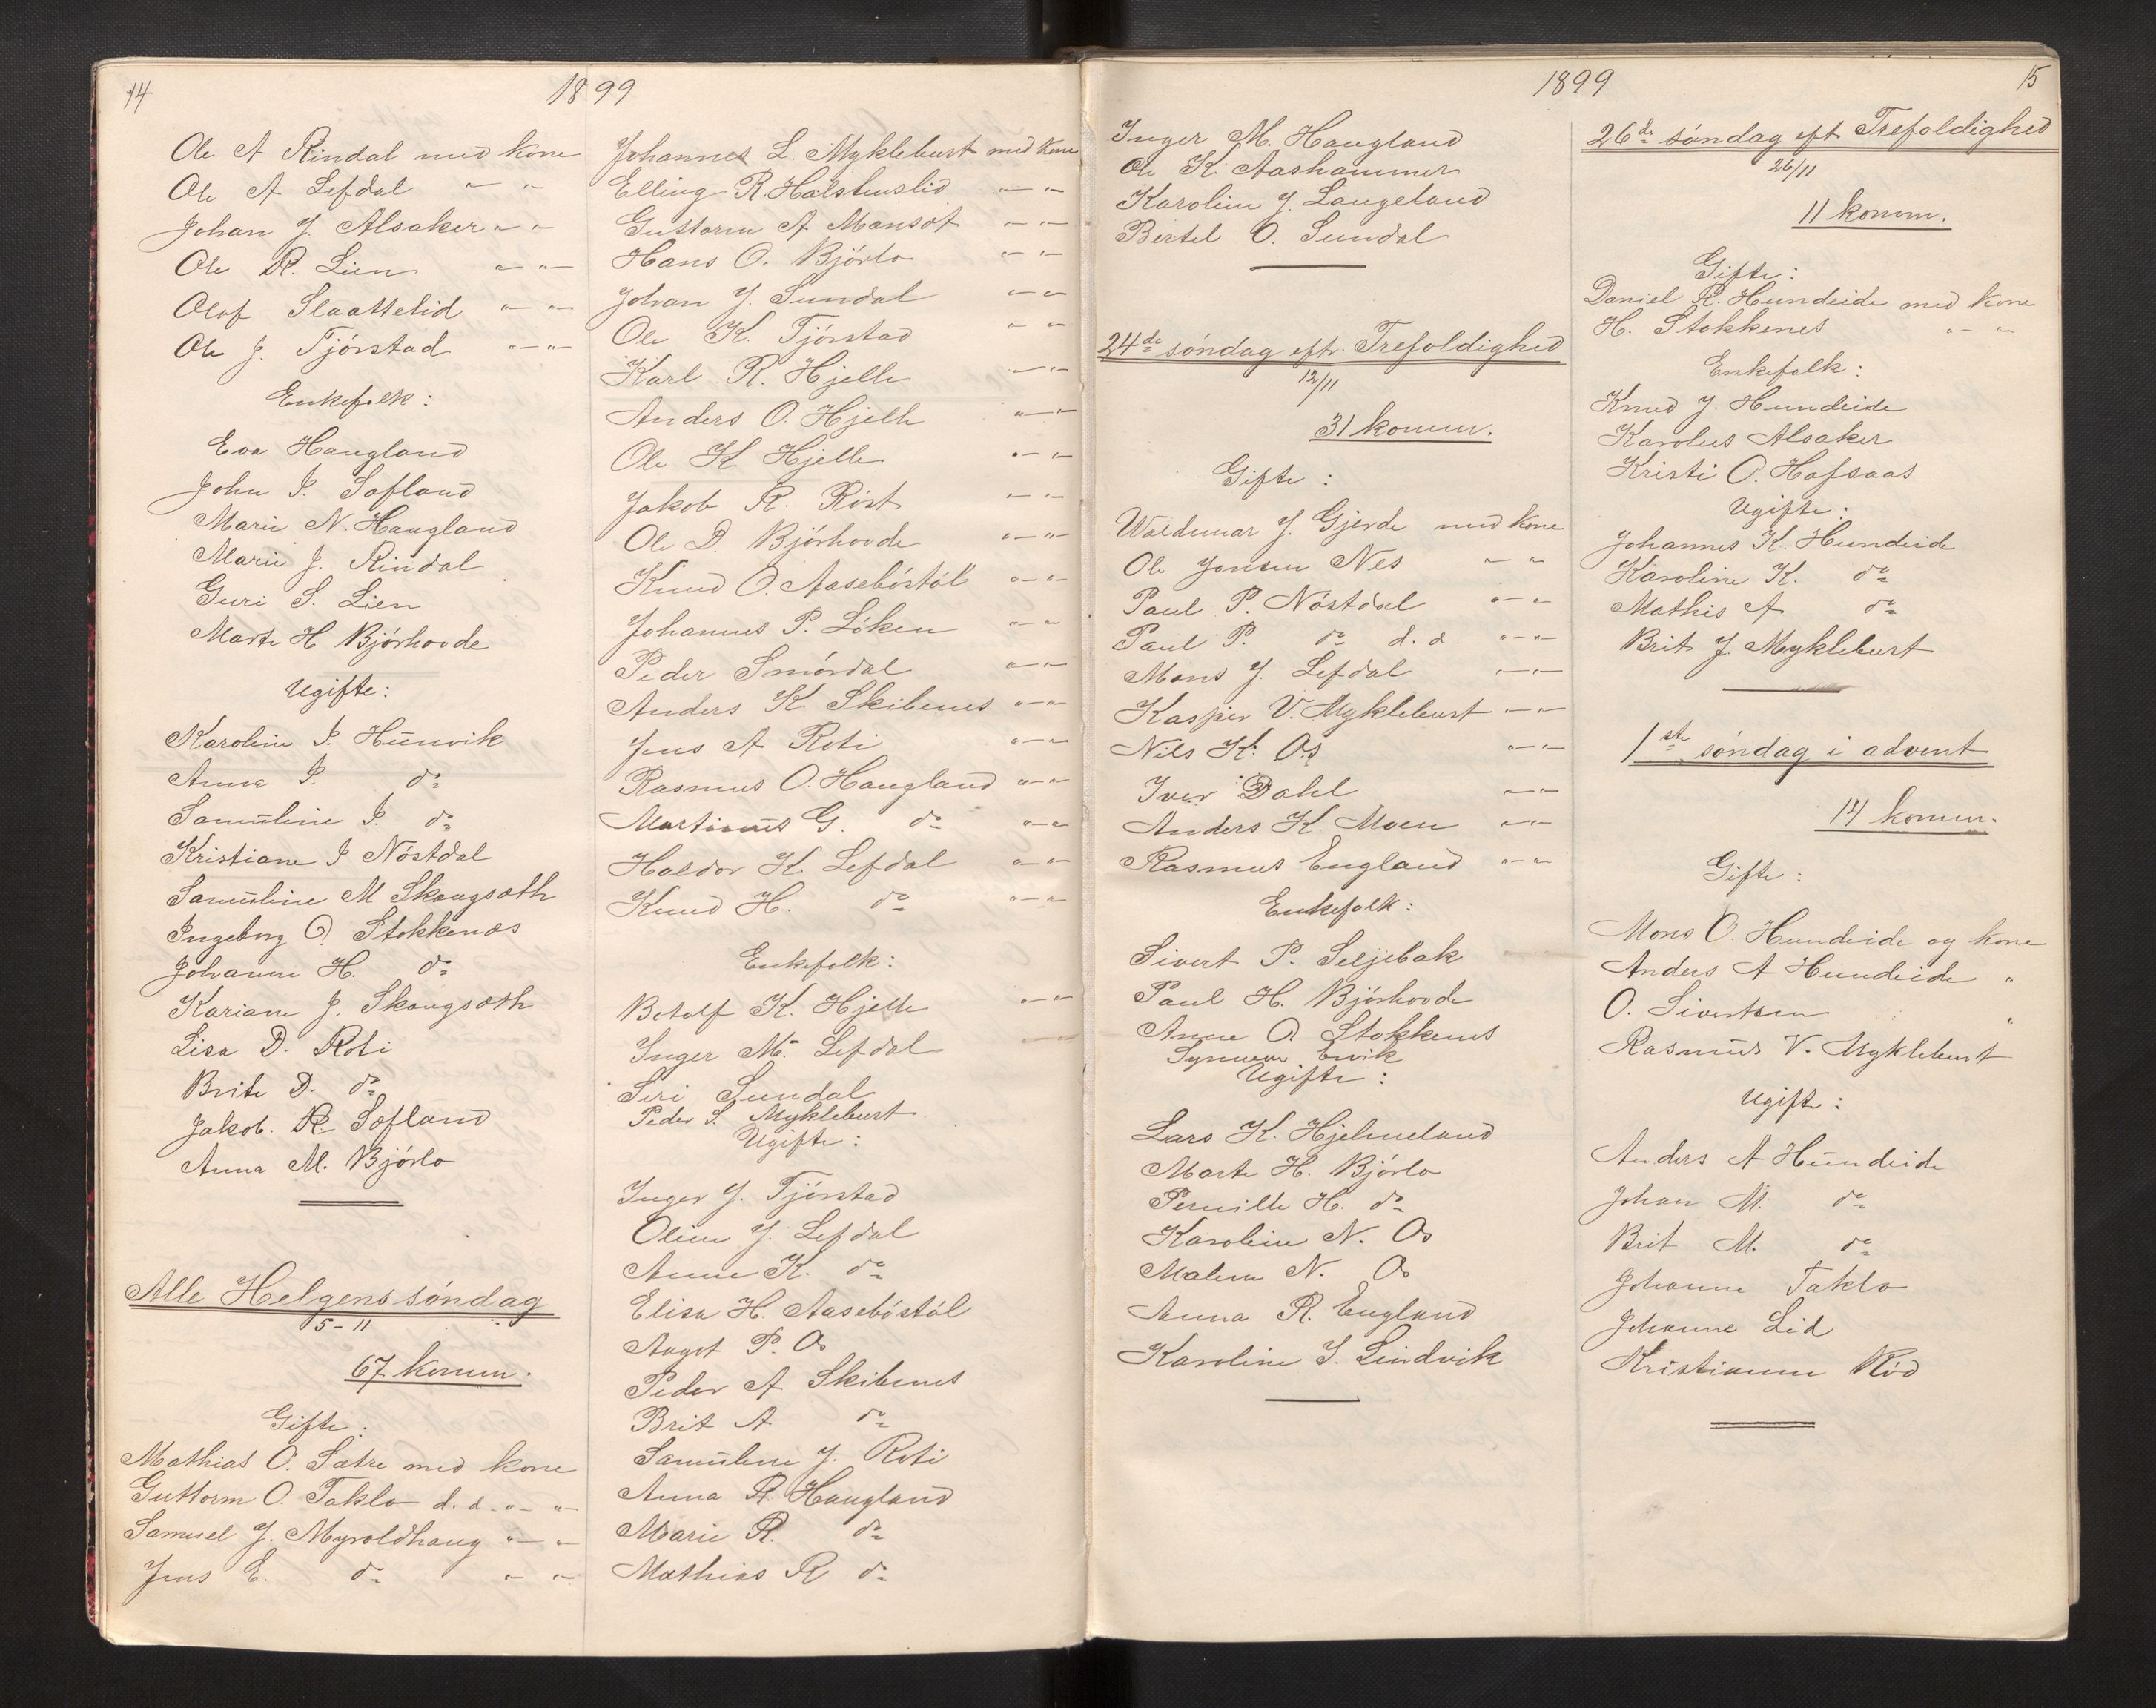 14
1899
Ole A Rindal med kone
Ole A Lefdal " — "
Johan J. Alsaker " — "
Ole R. Lien " — "
Olof Slaattelid " — "
Ole J. Tjórstad " — "
Enkefolk:
Eva Haugland
John I. Sofland
Marie N. Haugland
Marie J. Rindal
Guri S. Lien
Marte H Bjórhovde
Ugifte:
Karoline I. Hunvik
Anna I. do
Samuline I. do
Kristiane I Nóstdal
Samuline M Skougsæth
Ingeborg O. Stokkenæs
Johanne H. do
Kariane J. Skougsæth
Lisa D. Roti
Brite D. do
Jakob. R Sofland
Anna M. Bjórlo
Alle Helgens sóndag
5-11
67 komm.
Gifte:
Mathias O. Sætre med kone
Guttorm O. Taklo d. d. " — "
Samuel J. Myroldhaug " — "
Jens E. do " — "
Johannes L. Myklebust med kone
Elling R. Halstenslid " — "
Guttorm A Monsøt " — "
Hans O. Bjórlo " — "
Johan J. Sundal " — "
Ole K. Tjórstad " — "
Karl R. Hjelle " — "
Anders O. Hjelle " — "
Ole K Hjelle " — "
Jakob R. Rist " — "
Ole D. Bjórhovde " — "
Knud O. Aasebóstól " — "
Johannes P. Lóken " — "
Peder Smórdal " — "
Anders K Skibenes " — "
Jens A Roti " — "
Rasmus O. Haugland " — "
Martinus G. do " — "
Haldor K. Lefdal " — "
Knud H. do " — "
Enkefolk:
Botolf K. Hjelle " — "
Inger M. Lefdal
Siri Sundal
Peder S. Myklebust
Ugifte:
Inger J. Tjórstad
Oline J. Lefdal
Anne K. do
Elisa H. Aasebóstól
Aagot P. Os
Peder A Skibenes
Brit A do
Samuline J. Roti
Anna R. Haugland
Marie R. do
Mathias R do
1899
15
Inger M. Haugland
Ole K. Aashammer
Karoline J. Langeland
Bertel O. Sundal
24de sóndag eft. Trefoldighed
12/11
31 komm.
Gifte:
Woldemar J. Gjerde med kone
Ole Jonsen Nes " — "
Paul P. Nóstdal " — "
Paul P. do d. d. " — "
Mons J. Lefdal " — "
Kasper V. Myklebust " — "
Nils K. Os " — "
Iver Dahl " — "
Anders K Moen " — "
Rasmus England " — "
Enkefolk:
Sivert P. Seljebak
Paul H. Bjórhovde
Anne O Stokkenes
Synneve Evik
Ugifte:
Lars K. Hjelmeland
Marte H. Bjórlo
Pernille H. do
Karoline N. Os
Malene N. Os
Anna R. England
Karoline I. Lindvik
26de sóndag eft Trefoldighed
26/11
11 komm.
Gifte:
Daniel R. Hundeide med kone
H. Stokkenes " — "
Enkefolk:
Knud J. Hundeide
Karolus Alsaker
Kristi O. Hafsaas
Ugifte:
Johannes K. Hundeide
Karoline K. do
Mathis A do
Brit J. Myklebust
1ste sóndag i advent
14 komm.
Gifte:
Mons O. Hundeide og kone
Anders A Hundeide "
O. Sivertsen "
Rasmus V. Myklebust
Ugifte:
Anders A Hundeide
Johan M. do
Brit M. do
Johanne Taklo
Johanne Lid
Kristianne Ród